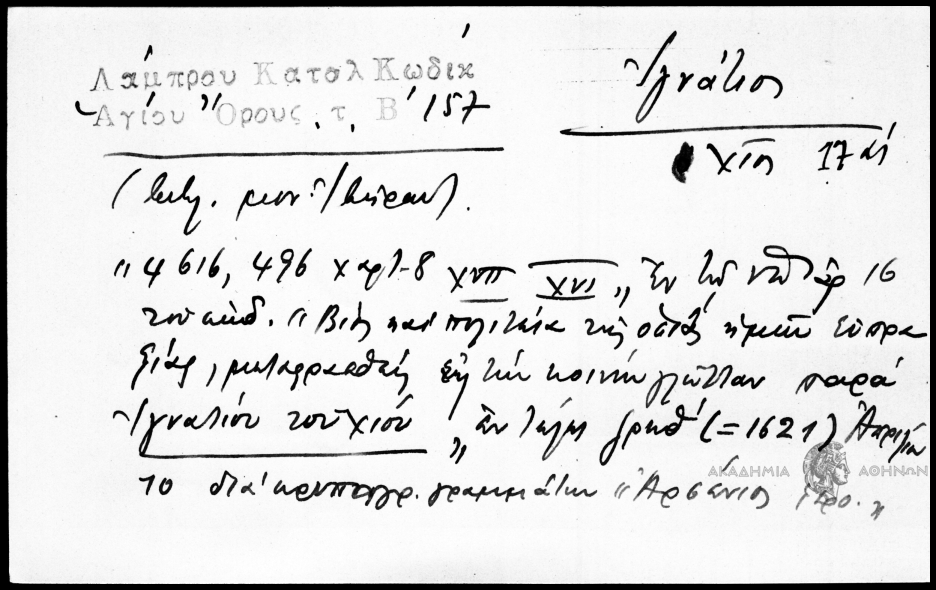 Λάμπρου Καταλ Κωδικ
Ἁγίου Ὄρους. τ. Β΄ 157
Ἰγνάτιος
Χῖος 17 αἰ
(βιβλ. μον. Ἰβήρων).
"4616, 496 χαρτ. 8 XVII XVI „ Ἐν τῷ 16
τοῦ κώδ. "Βίος καὶ πολιτεία τῆς ὁσίας ἡμῶν Εὐπρα
ξίας, μεταφρασθεὶς εἰς τὴν κοινὴν γλῶτταν παρὰ
Ἰγνατίου τοῦ Χίου „ ἐν τέλει (=1621) Ἀπριλίου
10 διὰ κρυπτογρ. γραμμάτων "Ἀρσένιος
ΑΚΑΔΗΜΙΑ ΑΘΗΝΩΝ